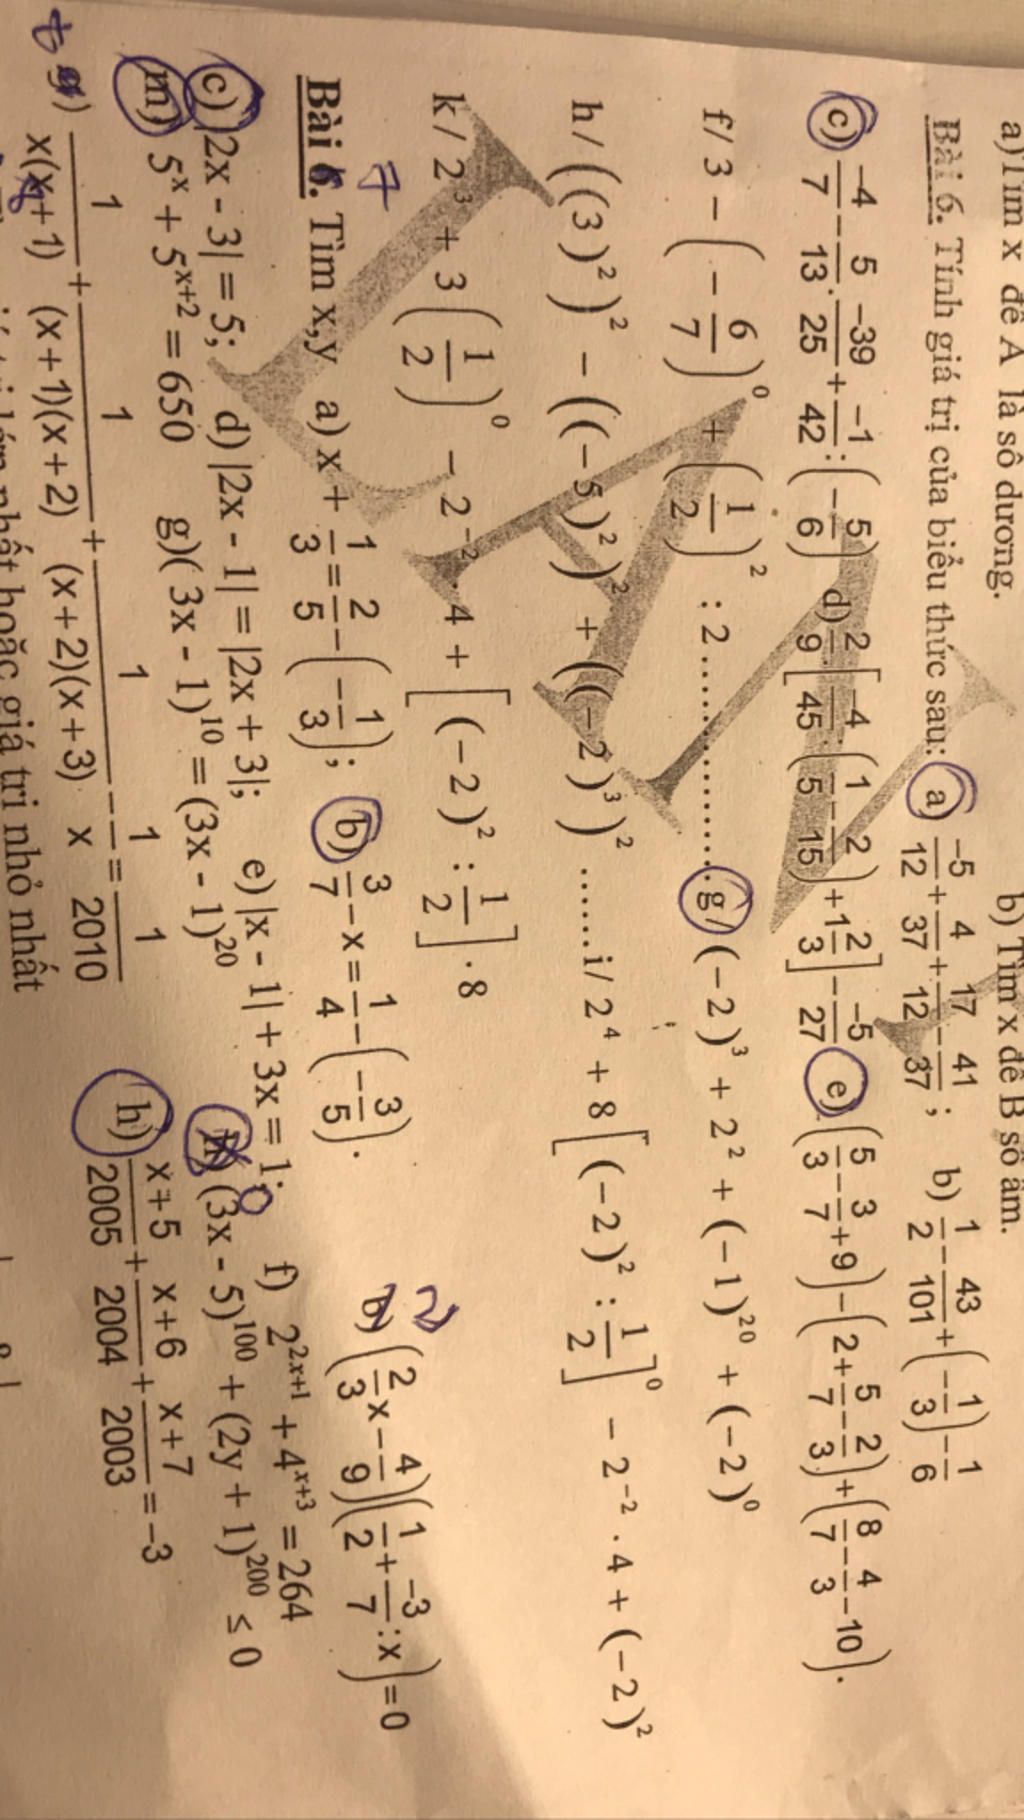 a)Tìm x để A là số dương. b) Tìm x để B số âm.
Bài 6. Tính giá trị của biểu thức sau: a) \frac{-5}{12}+\frac{4}{37}+\frac{17}{12}-\frac{41}{37}; b) \frac{1}{2}-\frac{43}{101}+\left(-\frac{1}{3}\right)-\frac{1}{6}
c) \frac{-4}{7}-\frac{5}{13}.\frac{-39}{25}+\frac{-1}{42}:\left(-\frac{5}{6}\right) d) \frac{2}{9}.\left[\frac{-4}{45}:\left(\frac{1}{5}-\frac{2}{15}\right)+1\frac{2}{3}\right]-\frac{-5}{27} e) \left(\frac{5}{3}-\frac{3}{7}+9\right)-\left(2+\frac{5}{7}-\frac{2}{3}\right)+\left(\frac{8}{7}-\frac{4}{3}-10\right).
f/ 3-\left(-\frac{6}{7}\right)^0+\left(\frac{1}{2}\right)^2:2.................g/ (-2)^3+2^2+(-1)^{20}+(-2)^0
h/ ((3)^2)^2-((-5)^2)^2+((-2)^3)^2......i/ 2^4+8\left[(-2)^2:\frac{1}{2}\right]^0-2^{-2}.4+(-2)^2
k/ 2^3+3\left(\frac{1}{2}\right)^0-2^{-2}.4+\left[(-2)^2:\frac{1}{2}\right].8
7 2
Bài 6. Tìm x,y a) x+\frac{1}{3}=\frac{2}{5}-\left(-\frac{1}{3}\right); b) \frac{3}{7}-x=\frac{1}{4}-\left(-\frac{3}{5}\right). b) \left(\frac{2}{3}x-\frac{4}{9}\right)\left(\frac{1}{2}+\frac{-3}{7}:x\right)=0
c) |2x - 3| = 5; d) |2x - 1| = |2x + 3|; e) |x - 1| + 3x = 1; f) 2^{2x+1}+4^{x+3}=264
m) 5^x + 5^{x+2} = 650 g)( 3x - 1)^{10} = (3x - 1)^{20} (3x - 5)^{100} + (2y + 1)^{200} ≤ 0
\frac{1}{x(x+1)}+\frac{1}{(x+1)(x+2)}+\frac{1}{(x+2)(x+3)}-\frac{1}{x}=\frac{1}{2010} h) \frac{x+5}{2005}+\frac{x+6}{2004}+\frac{x+7}{2003}=-3
trị lớn nhất hoặc giá trị nhỏ nhất